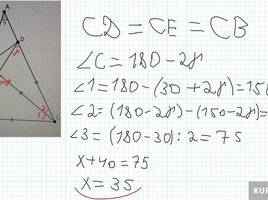 A
D
C
CD = CE = CB
∠C = 180 - 2γ
∠1 = 180 - (30 + 2γ) = 150
∠2 = (180 - 2γ) - (150 - 2γ) =
∠3 = (180 - 30) : 2 = 75
x + 40 = 75
x = 35